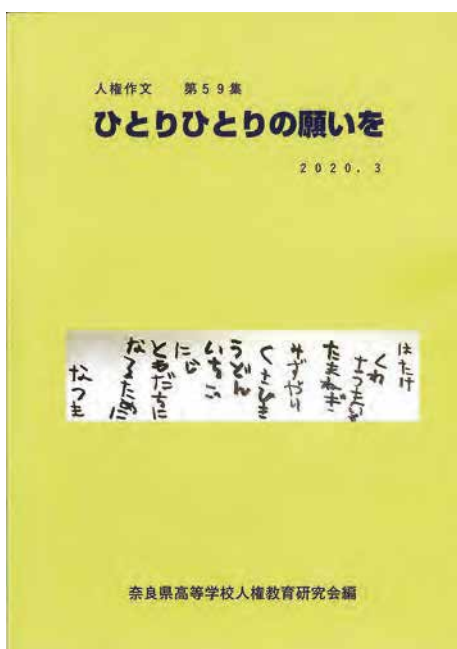 人権作文　第59集
ひとりひとりの願いを
2020.3
はたけ
くわ
さつまいも
たまねぎ
みずやり
くさひき
うどん
いちご
にじ
ともだちに
なるために
奈良県高等学校人権教育研究会編